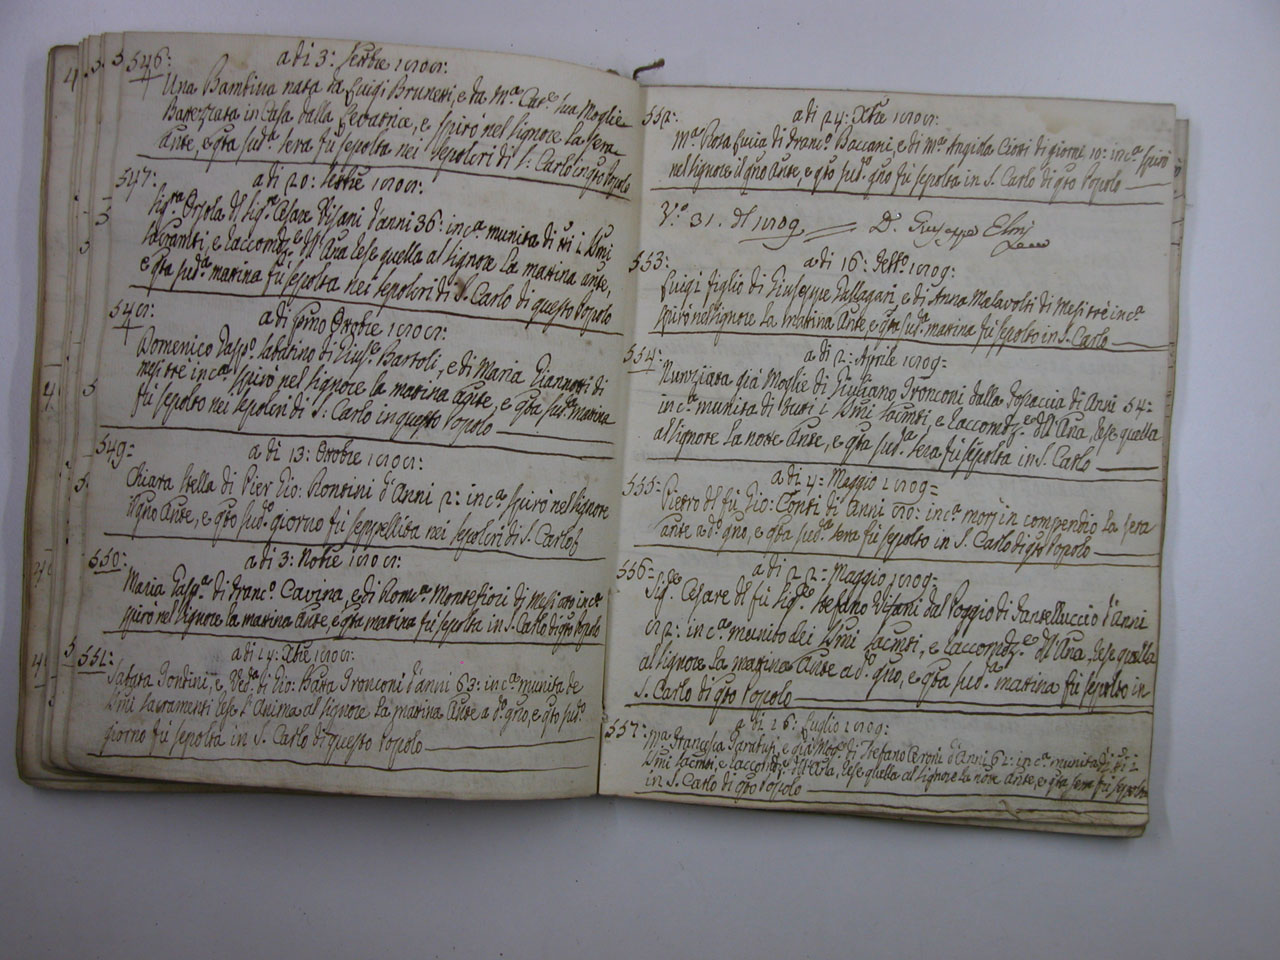 546:
a dì 3: Settbre 1808:
Una Bambina nata da Luigi Brunetti, e da M.ª Cat.ª sua Moglie
Battezzata in Casa dalla Levatrice, e spirò nel Signore la sera
ante, e qta sud.ª sera fù sepolta nei sepolcri di S: Carlo in qto Popolo
547:
a dì 20: Settbre 1808:
Sig.ra Orsola di Sig.r Cesare Visani d'anni 36: inc.ª munita di tti i SSmi
Sacramti, e raccomdz.e dll'Ana rese quella al Signore la mattina ante,
e qta sud.ª mattina fù sepolta nei sepolcri di S. Carlo di questo Popolo
548:
a dì primo Ottobre 1808:
Domenico Gasp.o Sabatino di Gius.e Bartoli, e di Maria Giannotti di
mesi tre inc.ª spirò nel Signore la mattina ante, e qta sud.ª mattina
fù sepolto nei sepolcri di S. Carlo in questo Popolo
549=
a dì 13: Ottobre 1808:
Chiara Stella di Pier Gio: Rontini d'Anni 2: inc.ª spirò nel Signore
il gno ante, e qto sud.o giorno fù seppellita nei sepolcri di S. Carlo
550:
a dì 3: Nobre 1808:
Maria Gasp.ª di Franc.o Cavina, e di Rom.ª Montefiori di Mesi otto inc.ª
spirò nel Signore la mattina ante, e qta mattina fù sepolta in S. Carlo di qto Popolo
551:
a dì 14: Xbre 1808:
Sabata Fontini, e Ved.ª di Gio: Batta Tronconi d'anni 63: inc.ª munita de
SSmi Sacramenti rese l'Anima al Signore la mattina ante a d.o gno, e qto sud.o
giorno fù sepolta in S. Carlo di questo Popolo
552:
a dì 24: Xbre 1808:
M.ª Rosa Lucia di Franc.o Baccani, e di M.ª Angiola Ciotti di giorni 10: inc.ª spirò
nel Signore il gno ante, e qto sud.o gno fù sepolta in S. Carlo di qto Popolo
V.o 31. dl 1809 D. Giuseppe Elmi
553:
a dì 16: Febb.o 1809:
Luigi figlio di Giuseppe Gallagari, e di Anna Malavolti di Mesi tre inc.ª
spirò nel Signore la mattina ante e qta sud.ª mattina fù sepolto in S. Carlo
554:
a dì 2: Aprile 1809=
Nunziata già Moglie di Giuliano Tronconi dalla di Anni 54=
inc.ª munita di tutti i SSmi Sacmti, e raccomdz.e dll'Ana, rese quella
al Signore la notte ante, e qta sud.ª sera fù sepolta in S. Carlo
555=
a dì 4= Maggio 1809=
Pietro dl fù Gio: Conti di Anni 80: inc.ª morì in compendio la sera
ante a d.o gno, e qta sud.ª sera fù sepolto in S. Carlo di qto Popolo
556=
a dì 22= Maggio 1809=
Sig.r Cesare dl fù Sig.r Stefano Visani dal Poggio di Fantelluccio d'Anni
82: inc.ª munito dei SSmi Sacmti, e raccomdz.e dll'Ana, rese quella
al Signore la mattina ante a d.o gno, e qta sud.ª mattina fù sepolto in
S. Carlo di qto Popolo
557:
a dì 16: Luglio 1809:
M.ª Francesca e già Mog.e di Stefano Ceroni d'Anni 61: inc.ª munita di tti i
SSmi Sacmti, e raccomdz.e dll'Ana, rese quella al Signore la notte ante, e qta sera fù sepolta
in S. Carlo di qto Popolo